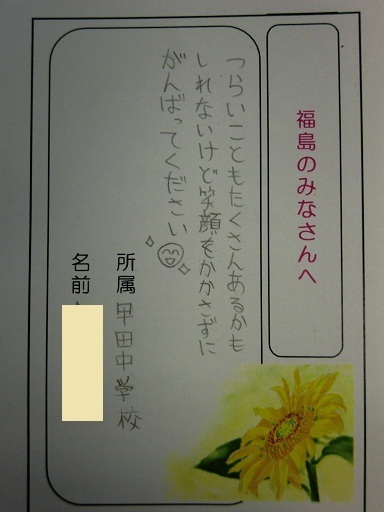 福島のみなさんへ
つらいこともたくさんあるかも
しれないけど笑顔をかかさずに
がんばってください
所属 甲田中学校
名前